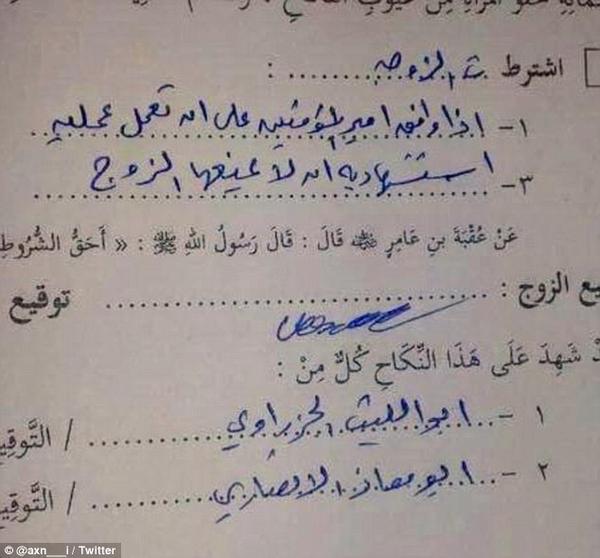 اشترطت الزوجة :
١- اذا وافق امير المؤمنين على ان تعمل عمليه
٣- استشهاديه ان لا يمنعها الزوج
عَنْ عُقْبَةَ بنِ عَامِرٍ ﷺ قَالَ : قَالَ رَسُولُ اللهِ ﷺ : « أَحَقُّ الشُّرُوطِ
يع الزوج : توقيع
دْ شَهِدَ عَلَى هَذَا النِّكَاحِ كُلٌّ مِنْ :
١ - ابو الليث الجزراوي / التَّوقِي
٢ - ابو معاذ الانصاري / التَّوقِي
© @axn___i / Twitter